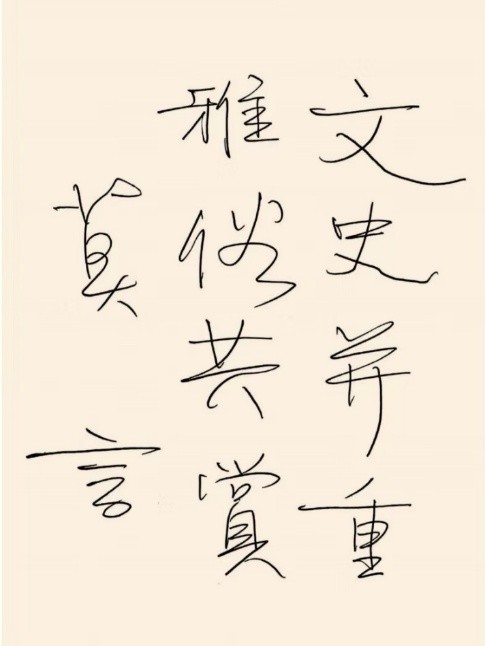 文史并重
雅俗共赏
莫言